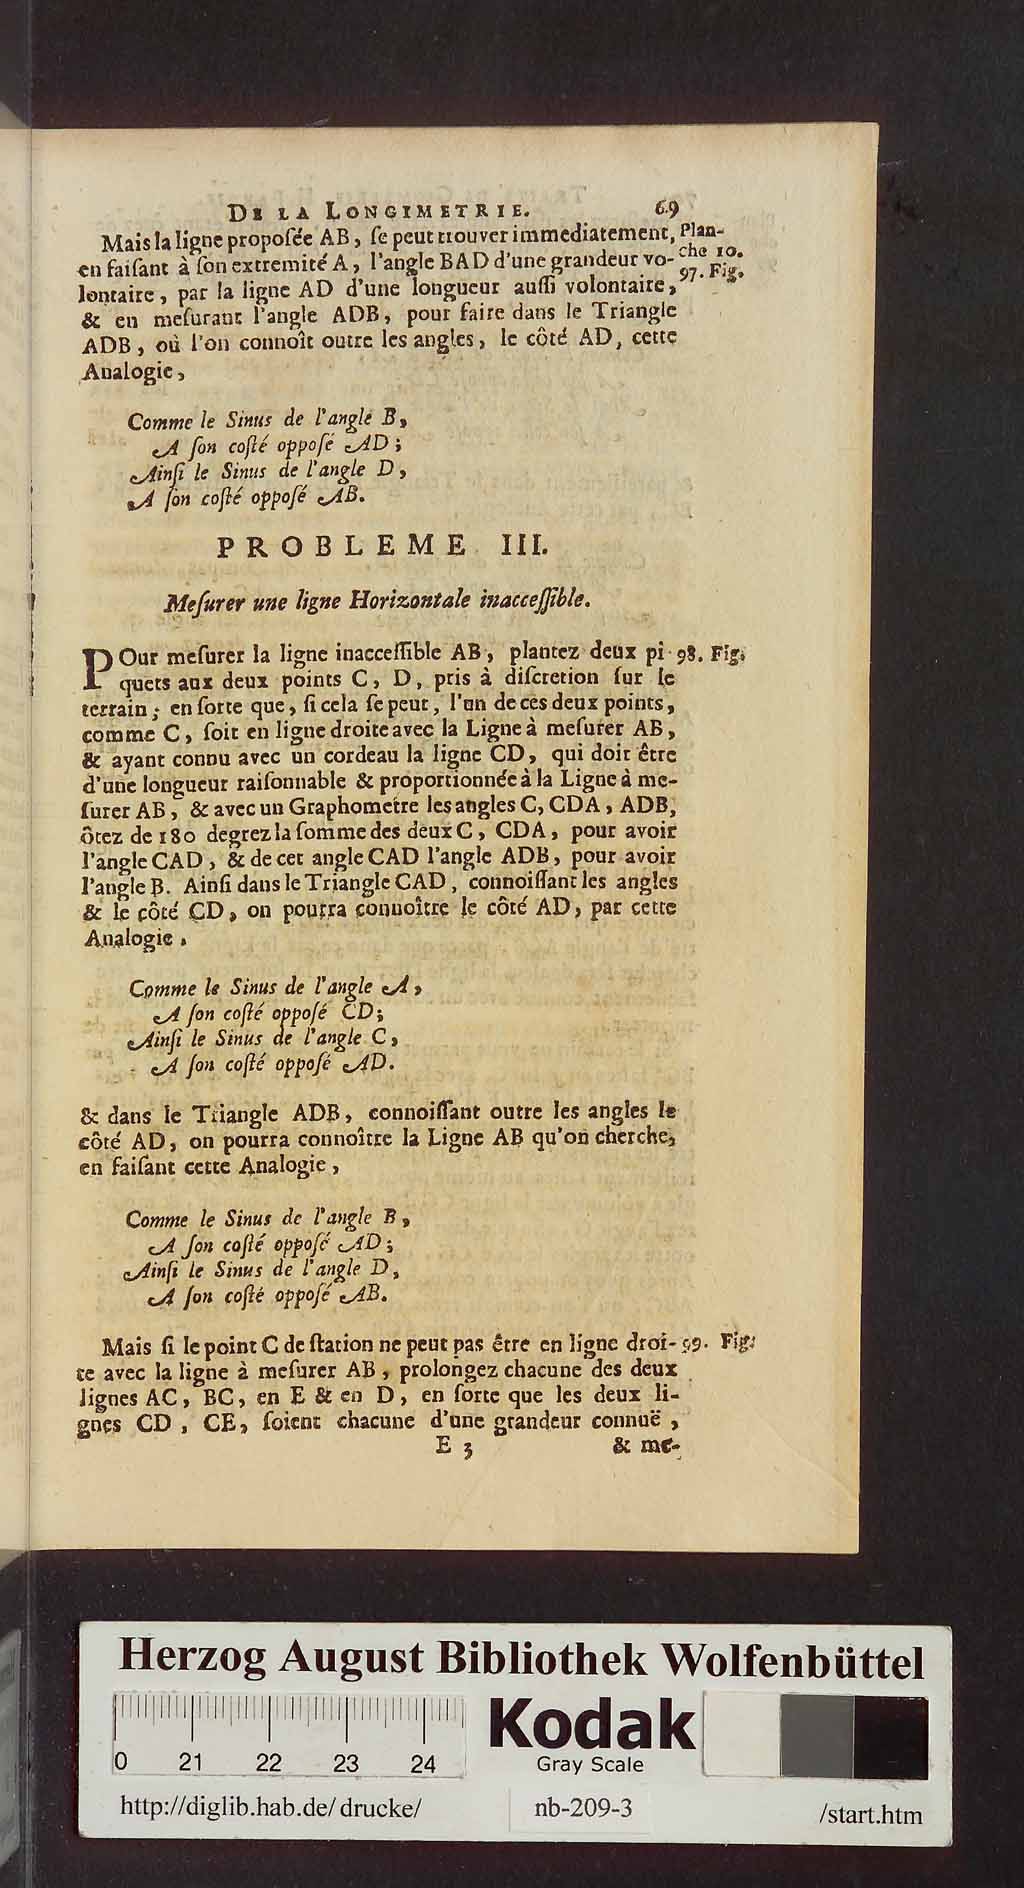 DE LA LONGIMETRIE. 69
Mais la ligne proposée AB, se peut trouver immediatement, Plan-
en faisant à son extremité A, l'angle BAD d'une grandeur vo- che 10.
lontaire, par la ligne AD d'une longueur aussi volontaire, 97. Fig.
& en mesurant l'angle ADB, pour faire dans le Triangle
ADB, où l'on connoît outre les angles, le côté AD, cette
Analogie,
Comme le Sinus de l'angle B,
A son costé opposé AD;
Ainsi le Sinus de l'angle D,
A son costé opposé AB.
PROBLEME III.
Mesurer une ligne Horizontale inaccessible.
POur mesurer la ligne inaccessible AB, plantez deux pi- 98. Fig.
quets aux deux points C, D, pris à discretion sur le
terrain; en sorte que, si cela se peut, l'un de ces deux points,
comme C, soit en ligne droite avec la Ligne à mesurer AB,
& ayant connu avec un cordeau la ligne CD, qui doit être
d'une longueur raisonnable & proportionnée à la Ligne à me-
surer AB, & avec un Graphometre les angles C, CDA, ADB,
ôtez de 180 degrez la somme des deux C, CDA, pour avoir
l'angle CAD, & de cet angle CAD l'angle ADB, pour avoir
l'angle B. Ainsi dans le Triangle CAD, connoissant les angles
& le côté CD, on pourra connoître le côté AD, par cette
Analogie,
Comme le Sinus de l'angle A,
A son costé opposé CD;
Ainsi le Sinus de l'angle C,
A son costé opposé AD.
& dans le Triangle ADB, connoissant outre les angles le
côté AD, on pourra connoître la Ligne AB qu'on cherche,
en faisant cette Analogie,
Comme le Sinus de l'angle B,
A son costé opposé AD;
Ainsi le Sinus de l'angle D,
A son costé opposé AB.
Mais si le point C de station ne peut pas être en ligne droi- 99. Fig.
te avec la ligne à mesurer AB, prolongez chacune des deux
lignes AC, BC, en E & en D, en sorte que les deux li-
gnes CD, CE, soient chacune d'une grandeur connuë,
E 3 & me-
Herzog August Bibliothek Wolfenbüttel
Kodak
Gray Scale
0 21 22 23 24
http://diglib.hab.de/drucke/ nb-209-3 /start.htm